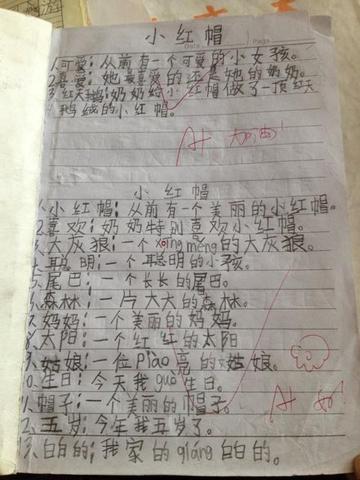 小红帽
1.可爱：从前有一个可爱的小女孩。
2.喜爱：她最喜爱的还是她的奶奶。
3.红天鹅：奶奶给小红帽做了一顶红天
鹅绒的小红帽。
A+ 加油！
小红帽
1.小红帽：从前有一个美丽的小红帽。
2.喜欢：奶奶特别喜欢小红帽。
3.大灰狼：一个xiōng měng的大灰狼。
聪明：一个聪明的小孩。
5.尾巴：一个长长的尾巴。
森林：一片大大的森林。
7.妈妈：一个美丽的妈妈。
8.太阳：一个红红的太阳
9.姑娘：一位piào亮的姑娘。
0.生日：今天我guò生日。
1.帽子：一个美丽的帽子。
2.五岁：今年我五岁了。
A+ 好！
3.白白的：我家的qiáng白白的。